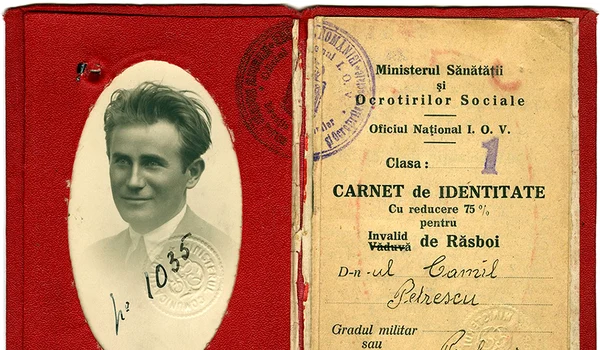 Nº 1035
Ministerul Sănătății
și
Ocrotirilor Sociale
Oficiul Național I. O. V.
Clasa : 1
CARNET de IDENTITATE
Cu reducere 75 %
pentru
Invalid
Văduvă de Răsboi
D-n-ul Camil
Petrescu
Gradul militar
sau